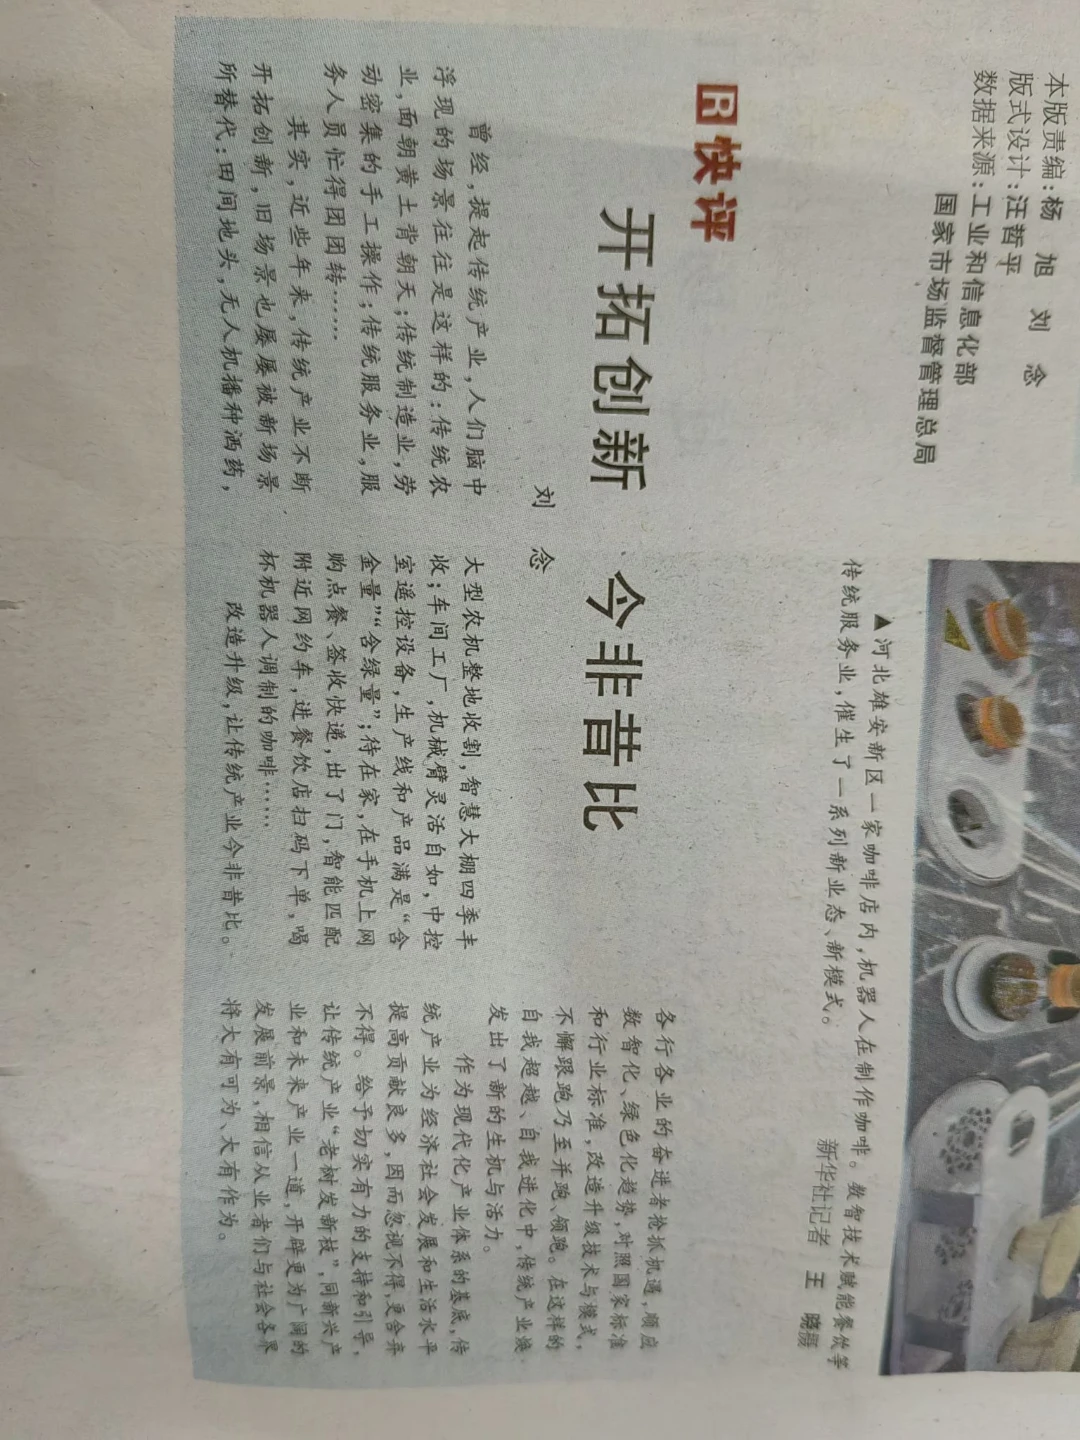 本版责编：杨　旭　刘　念
版式设计：汪哲平
数据来源：工业和信息化部
国家市场监督管理总局
▲河北雄安新区一家咖啡店内，机器人在制作咖啡。数智技术赋能餐饮等
传统服务业，催生了一系列新业态、新模式。
新华社记者　王　晓摄
R快评
开拓创新　今非昔比
刘　念
曾经，提起传统产业，人们脑中
浮现的场景往往是这样的：传统农
业，面朝黄土背朝天；传统制造业，劳
动密集的手工操作；传统服务业，服
务人员忙得团团转……
其实，近些年来，传统产业不断
开拓创新，旧场景也屡屡被新场景
所替代：田间地头，无人机播种洒药，
大型农机整地收割，智慧大棚四季丰
收；车间工厂，机械臂灵活自如，中控
室遥控设备，生产线和产品满是“含
金量”“含绿量”；待在家，在手机上网
购点餐、签收快递，出了门，智能匹配
附近网约车，进餐饮店扫码下单，喝
杯机器人调制的咖啡……
改造升级，让传统产业今非昔比。
各行各业的奋进者抢抓机遇，顺应
数智化、绿色化趋势，对照国家标准
和行业标准，改造升级技术与模式，
不懈跟跑乃至并跑、领跑。在这样的
自我超越、自我进化中，传统产业焕
发出了新的生机与活力。
作为现代化产业体系的基底，传
统产业为经济社会发展和生活水平
提高贡献良多，因而忽视不得，更舍弃
不得。给予切实有力的支持和引导，
让传统产业“老树发新枝”，同新兴产
业和未来产业一道，开辟更为广阔的
发展前景，相信从业者们与社会各界
将大有可为、大有作为。